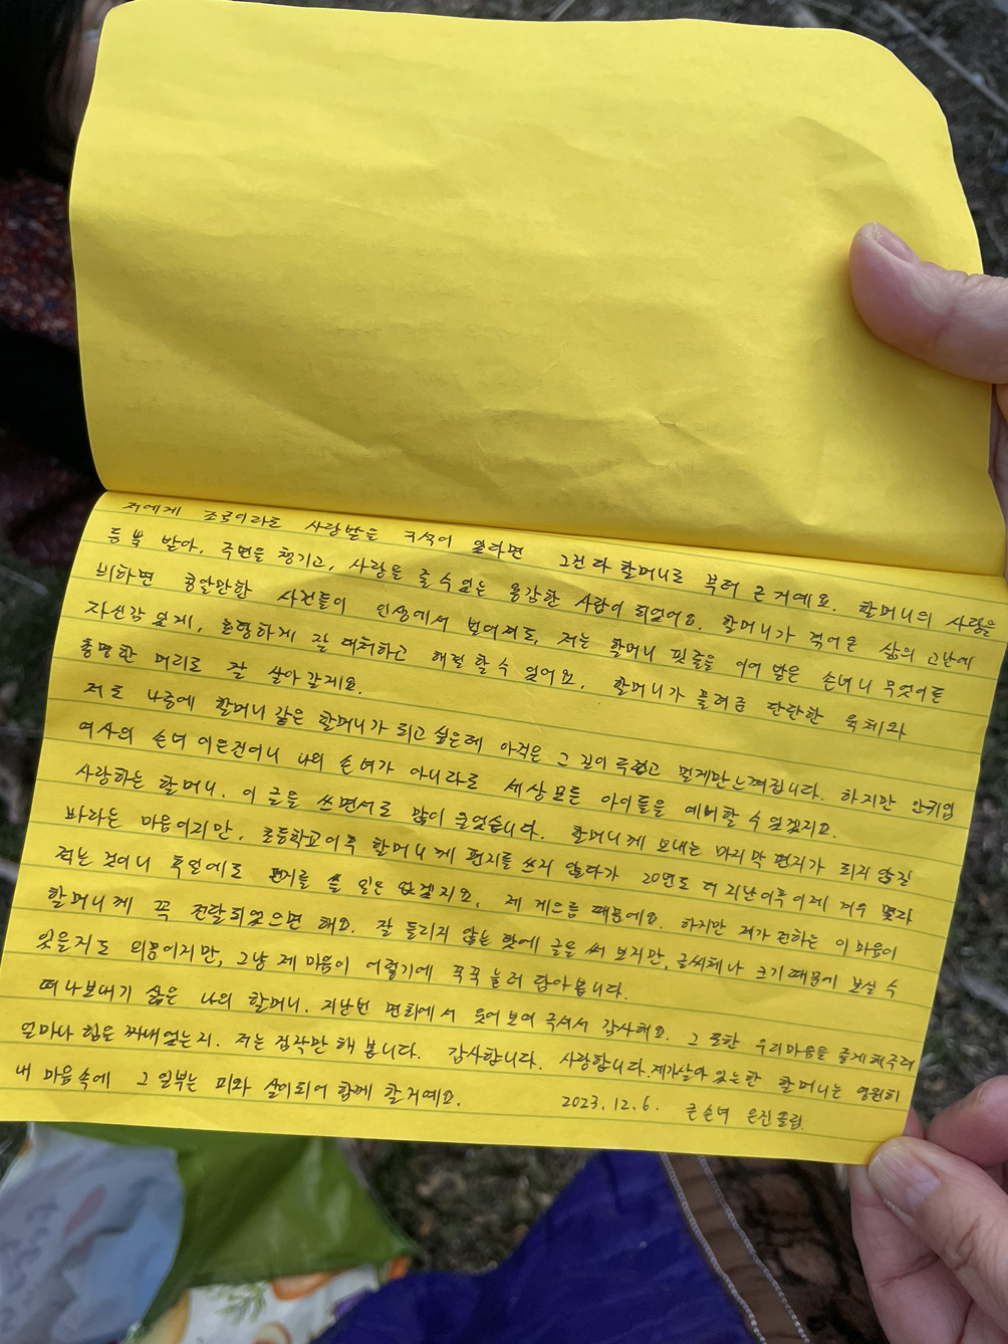 저에게 조금이라도 사랑받을 구석이 있다면 그건 다 할머니로 부터 온 거예요. 할머니의 사랑을
듬뿍 받아, 주변을 챙기고, 사랑을 줄 수 있는 용감한 사람이 되었어요. 할머니가 겪어온 삶의 고난에
비하면 콩알만한 사건들이 인생에서 벌어져도, 저는 할머니 핏줄을 이어 받은 손녀니 무엇이든
자신감 있게, 현명하게 잘 대처하고 해결 할 수 있어요. 할머니가 물려준 단단한 육체와
총명한 머리로 잘 살아갈게요.
저도 나중에 할머니 같은 할머니가 되고 싶은데 아직은 그 길이 두렵고 멀게만 느껴집니다. 하지만 안귀엽
여사의 손녀 이은진이니 나의 손녀가 아니라도 세상 모든 아이들을 예뻐할 수 있겠지요.
사랑하는 할머니. 이 글을 쓰면서도 많이 울었습니다. 할머니께 보내는 마지막 편지가 되지 않길
바라는 마음이지만, 초등학교 이후 할머니께 편지를 쓰지 않다가 20년도 더 지난 이후 이제 겨우 몇자
적는 것이니 후일에도 편지를 쓸 일은 없겠지요, 제 게으름 때문에요. 하지만 제가 전하는 이 마음이
할머니께 꼭 전달되었으면 해요. 잘 들리지 않는 탓에 글을 써 보지만, 글씨체나 크기 때문에 보실 수
있을지도 의문이지만, 그냥 제 마음이 어렵기에 꾹꾹 눌러 담아봅니다.
떠나보내기 싫은 나의 할머니. 지난번 면회에서 웃어 보여 주셔서 감사해요. 그 또한 우리마음을 좋게 해주려
얼마나 힘을 짜내었는지. 저는 짐작만 해 봅니다. 감사합니다. 사랑합니다. 제가 살아 있는 한 할머니는 영원히
내 마음속에 그 일부는 피와 살이 되어 함께 할거예요.
2023. 12. 6. 큰손녀 은진 올림.